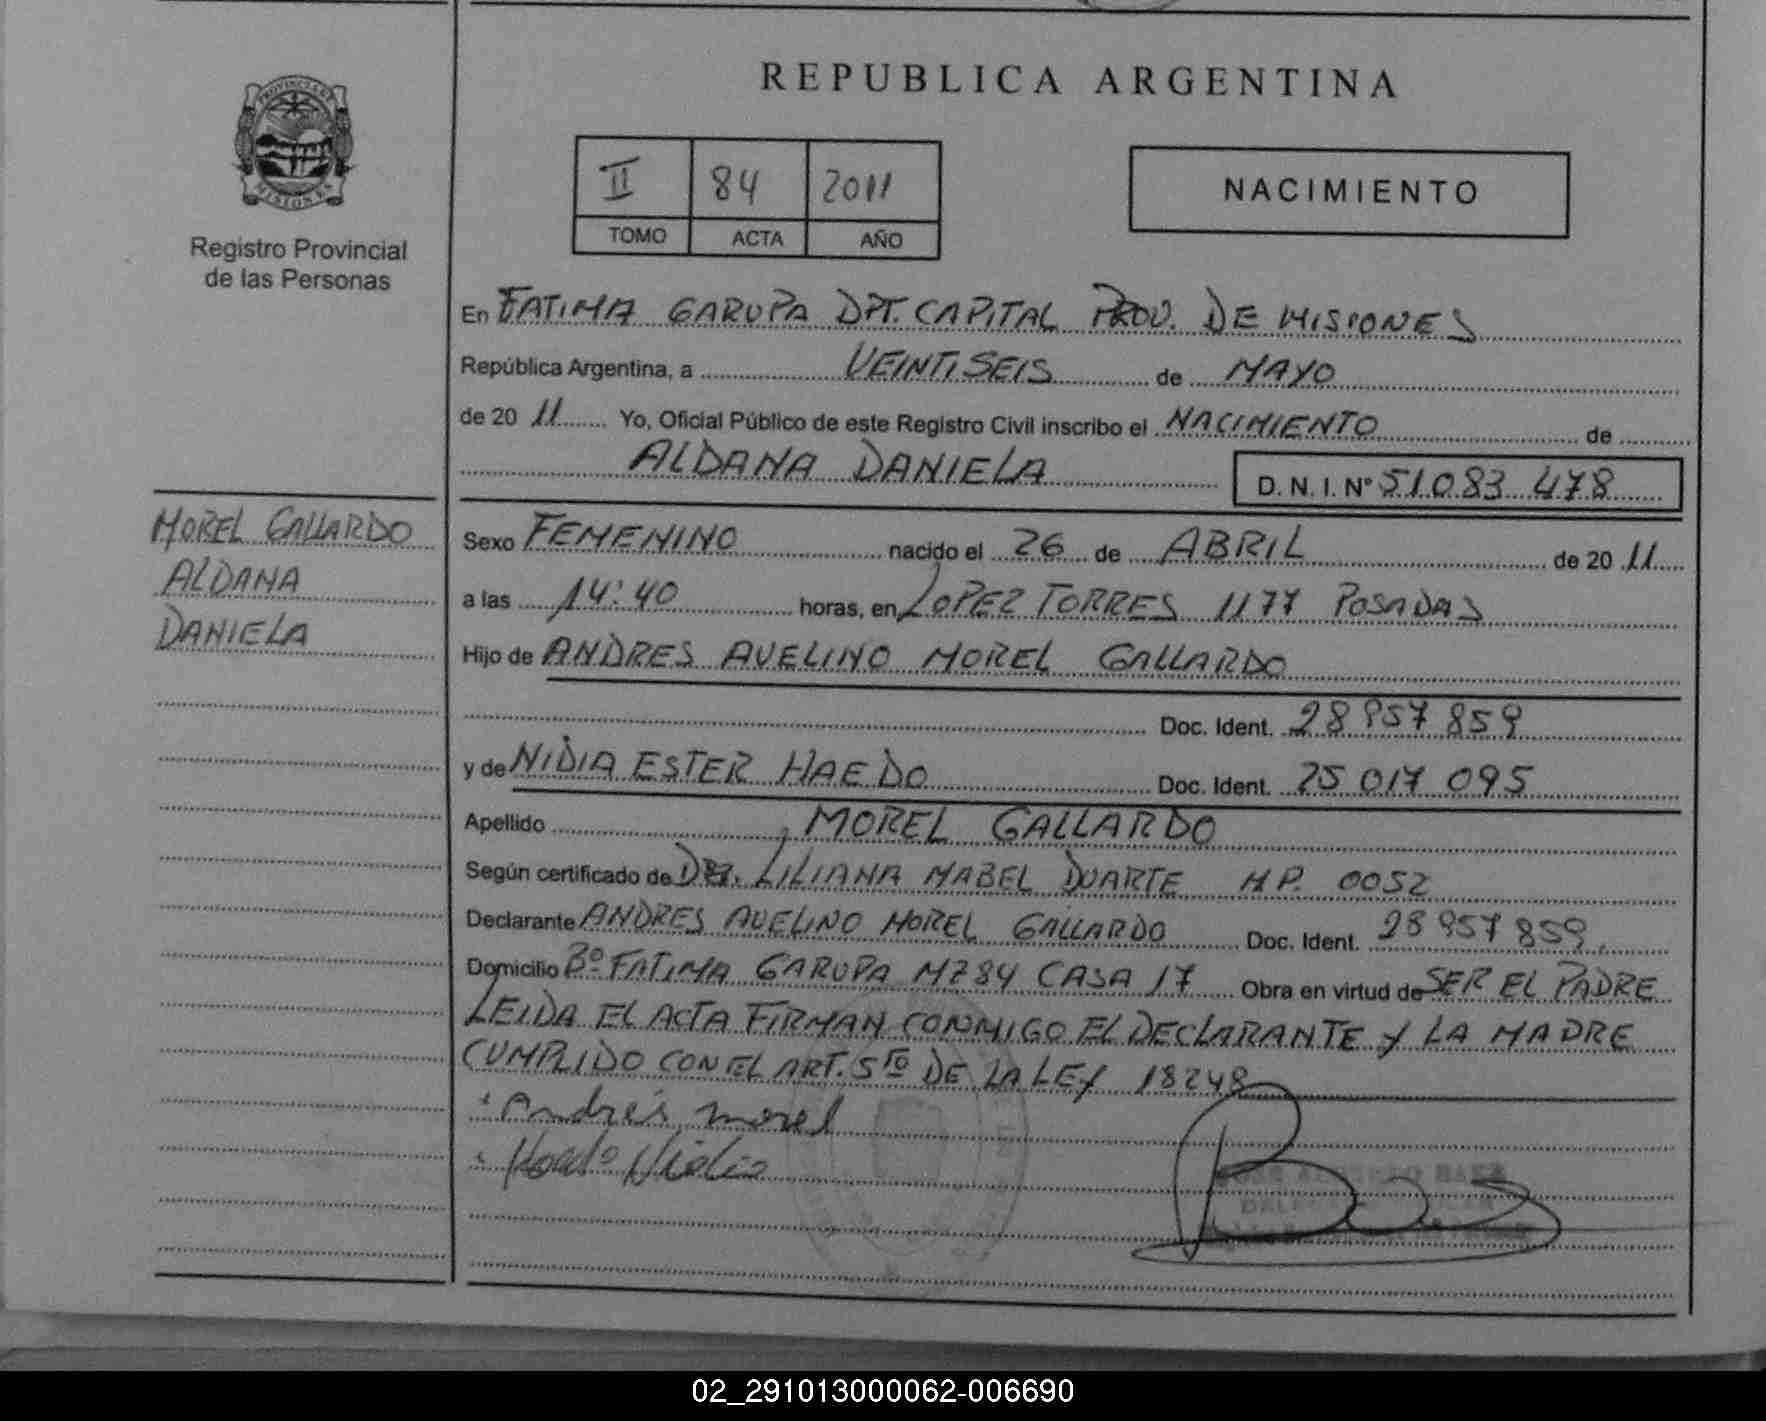 REPUBLICA ARGENTINA
PROVINCIA DE
MISIONES
Registro Provincial
de las Personas
II 84 2011
TOMO ACTA AÑO
NACIMIENTO
En FATIMA GARUPA DPT. CAPITAL PROV. DE MISIONES
República Argentina, a VEINTISEIS de MAYO
de 20 11 Yo, Oficial Público de este Registro Civil inscribo el NACIMIENTO de
ALDANA DANIELA D. N. I. Nº 51 083 478
MOREL GALLARDO
ALDANA
DANIELA
Sexo FEMENINO nacido el 26 de ABRIL de 20 11
a las 14:40 horas, en LOPEZ TORRES 1177 POSADAS
Hijo de ANDRES AVELINO MOREL GALLARDO
Doc. Ident. 28 957 859
y de NIDIA ESTER HAEDO Doc. Ident. 25 017 095
Apellido MOREL GALLARDO
Según certificado de DRA. LILIANA MABEL DUARTE M P. 0052
Declarante ANDRES AVELINO MOREL GALLARDO Doc. Ident. 28 957 859
Domicilio Bº FATIMA GARUPA MZ 84 CASA 17 Obra en virtud de SER EL PADRE
LEIDA EL ACTA FIRMAN CONMIGO EL DECLARANTE Y LA MADRE
CUMPLIDO CON EL ART. 5TO DE LA LEY 18248
Andrés morel
Haedo Nidia
02_291013000062-006690